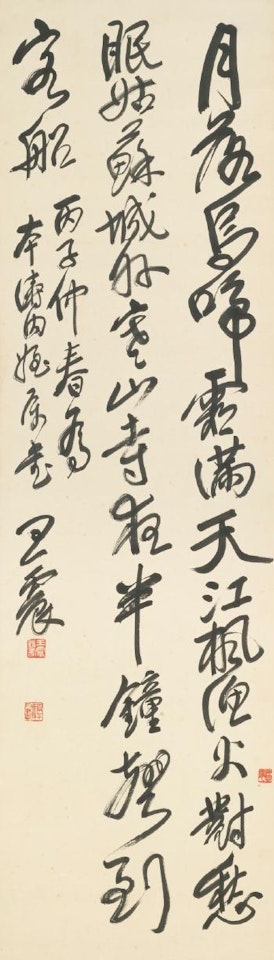 月落烏啼霜滿天江楓漁火對愁
眠姑蘇城外寒山寺夜半鐘聲到
客船
丙子仲春為
本濤内姪屬
王震